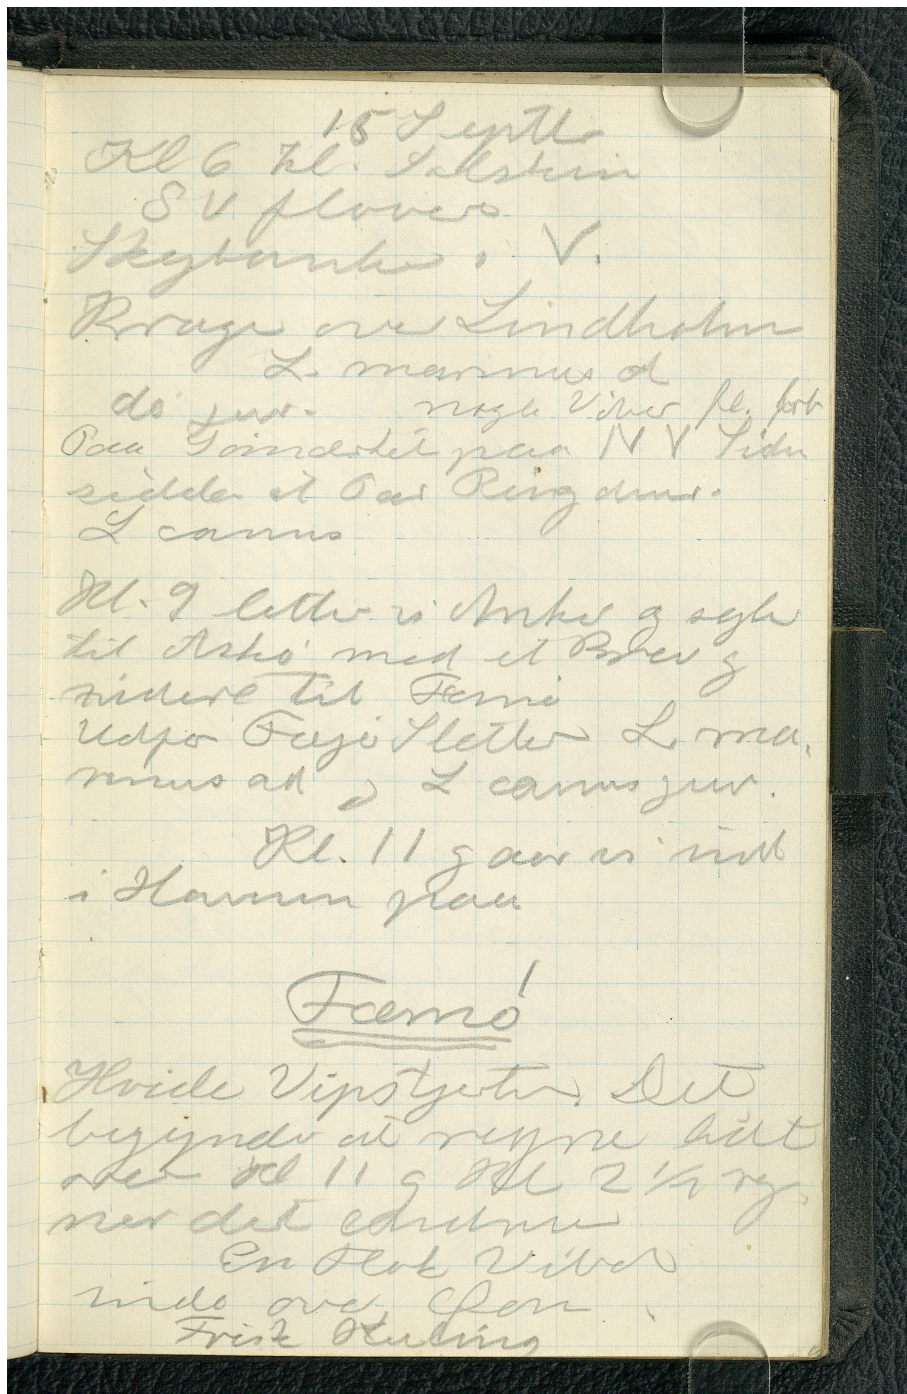 15 Septbr
Kl 6 Kl. Solskin
SV flover
Skybanke i V.
Krage over Lindholm
L. marinus d
do juv. nogle Viber fl. forb
Paa paa NV Siden
sidder et Par Ringduer.
L canus
Kl. 9 letter vi Anker og sejler
til Askø med et Brev og
videre til Femø
Udfor Fejø Sletter L. ma-
rinus ad og L canus juv.
Kl. 11 gaar vi ind
i Havnen paa
Fæmø
Hvide Vipstjerter. Det
begynder at regne lidt
over Kl 11 og Kl 2 1/2 reg-
ner det endnu
En Flok Viber
inde over Øen.
Frisk Kuling